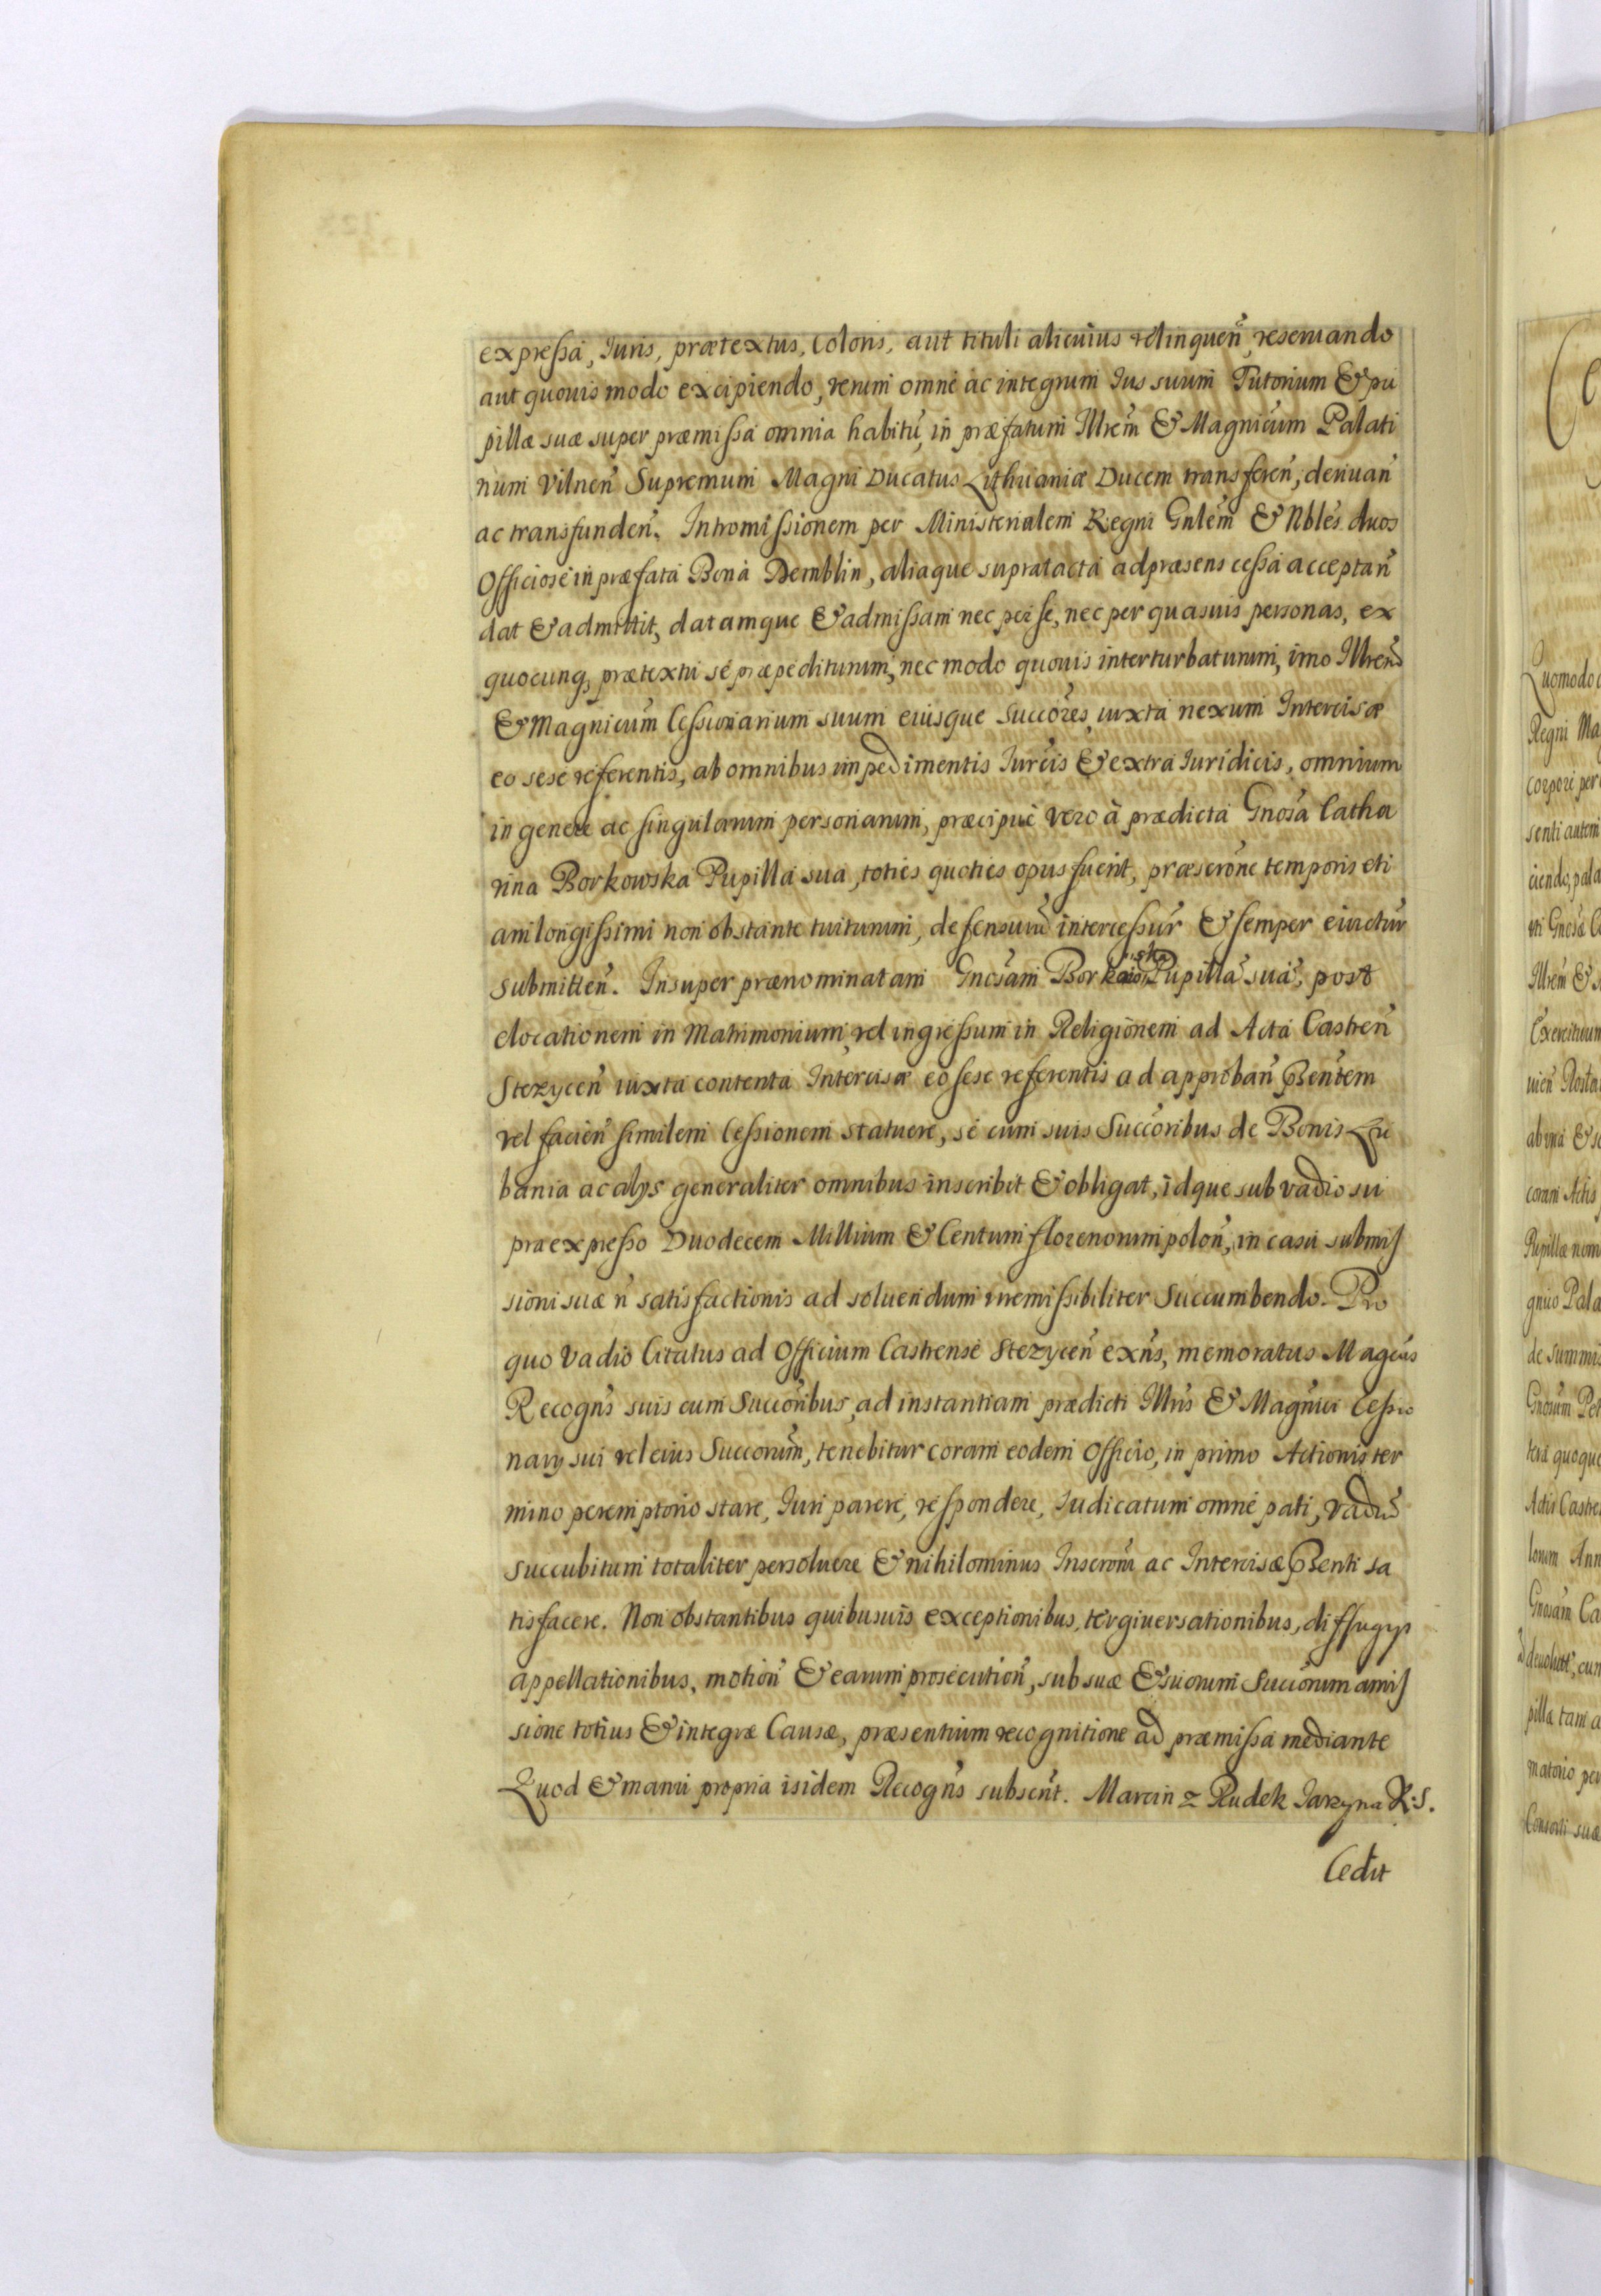 expressa, Iuris, prætextus, Coloris, aut tituli alicuius relinquen̄, reseruando
aut quouis modo excipiendo, verum omne ac integrum Ius suum Tutorium & pu
pillæ suæ super præmissa omnia habitū, in præfatum Illrem̄ & Magnicum̄ Palati
num Vilnen̄ Supremum Magni Ducatus Lithuaniæ Ducem transferen̄, deriuan̄
ac transfunden̄. Intromissionem per Ministerialem Regni Gnlem̄ & Nbles̄ duos
Officiose in præfata Bona Demblin, aliaque supratacta ad præsens cessa acceptan̄
dat & admittit, datamque & admissam nec per se, nec per quasuis personas, ex
quocunq, prætextu se præpediturum, nec modo quouis interturbaturum, imo Illrem̄
& Magnicum̄ Cessionarium suum eiusque Succōres iuxta nexum Intercisæ
eo sese referentis, ab omnibus impedimentis Iurcis̄ & extra Iuridicis, omnium
in genere ac singularum personarum, præcipue vero à prædicta Gnosa̅ Catha
rina Borkowska Pupilla sua, toties quoties opus fuerit, præscrōne temporis eti
am longissimi non obstante tuiturum, defensurū intercessur̄ & semper euictur̄
submitten̄. Insuper prænominatam Gnosam̄ Borkowska Pupillā suā, post
elocationem in Matrimonium, vel ingressum in Religionem ad Acta Castren̄
Stezycen̄ iuxta contenta Intercisæ eo sese referentis ad approban̄ Pn̄tem
vel facien̄ similem Cessionem statuere, se cum suis Succōribus de Bonis Lu
bania ac alys generaliter omnibus inscribit & obligat, idque sub vadio su
pra expresso Duodecem Millium & Centum florenorum polon̄, in casu submis
sioni suæ n̄ satisfactionis ad soluendum irremissibiliter Succumbendo. Pro
quo Vadio Citatus ad Officium Castrense Stezycen̄ exn̄s, memoratus Magcus̄
Recogn̄s suis cum Succōribus, ad instantiam prædicti Illris̄ & Magnici̅ Cessio
nary sui vel eius Succorum̄, tenebitur coram eodem Officio, in primo Actionis ter
mino peremptorio stare, Iuri parere, respondere, Iudicatum omne pati, Vadiū
succubitum totaliter persoluere & nihilominus Inscrōni ac Intercisæ Pn̄ti sa
tisfacere. Non obstantibus quibusuis exceptionibus, tergiuersationibus, diffugys
appellationibus, motion̄ & earum prosecution̄, sub suæ & suorum Succōrum amis
sione totius & integræ Causæ, præsentium recognitione ad præmissa mediante
Quod & manu propria isidem Recogn̄s subscrit̄. Marcin z Rudek Jarzyna R: S.
Cedit